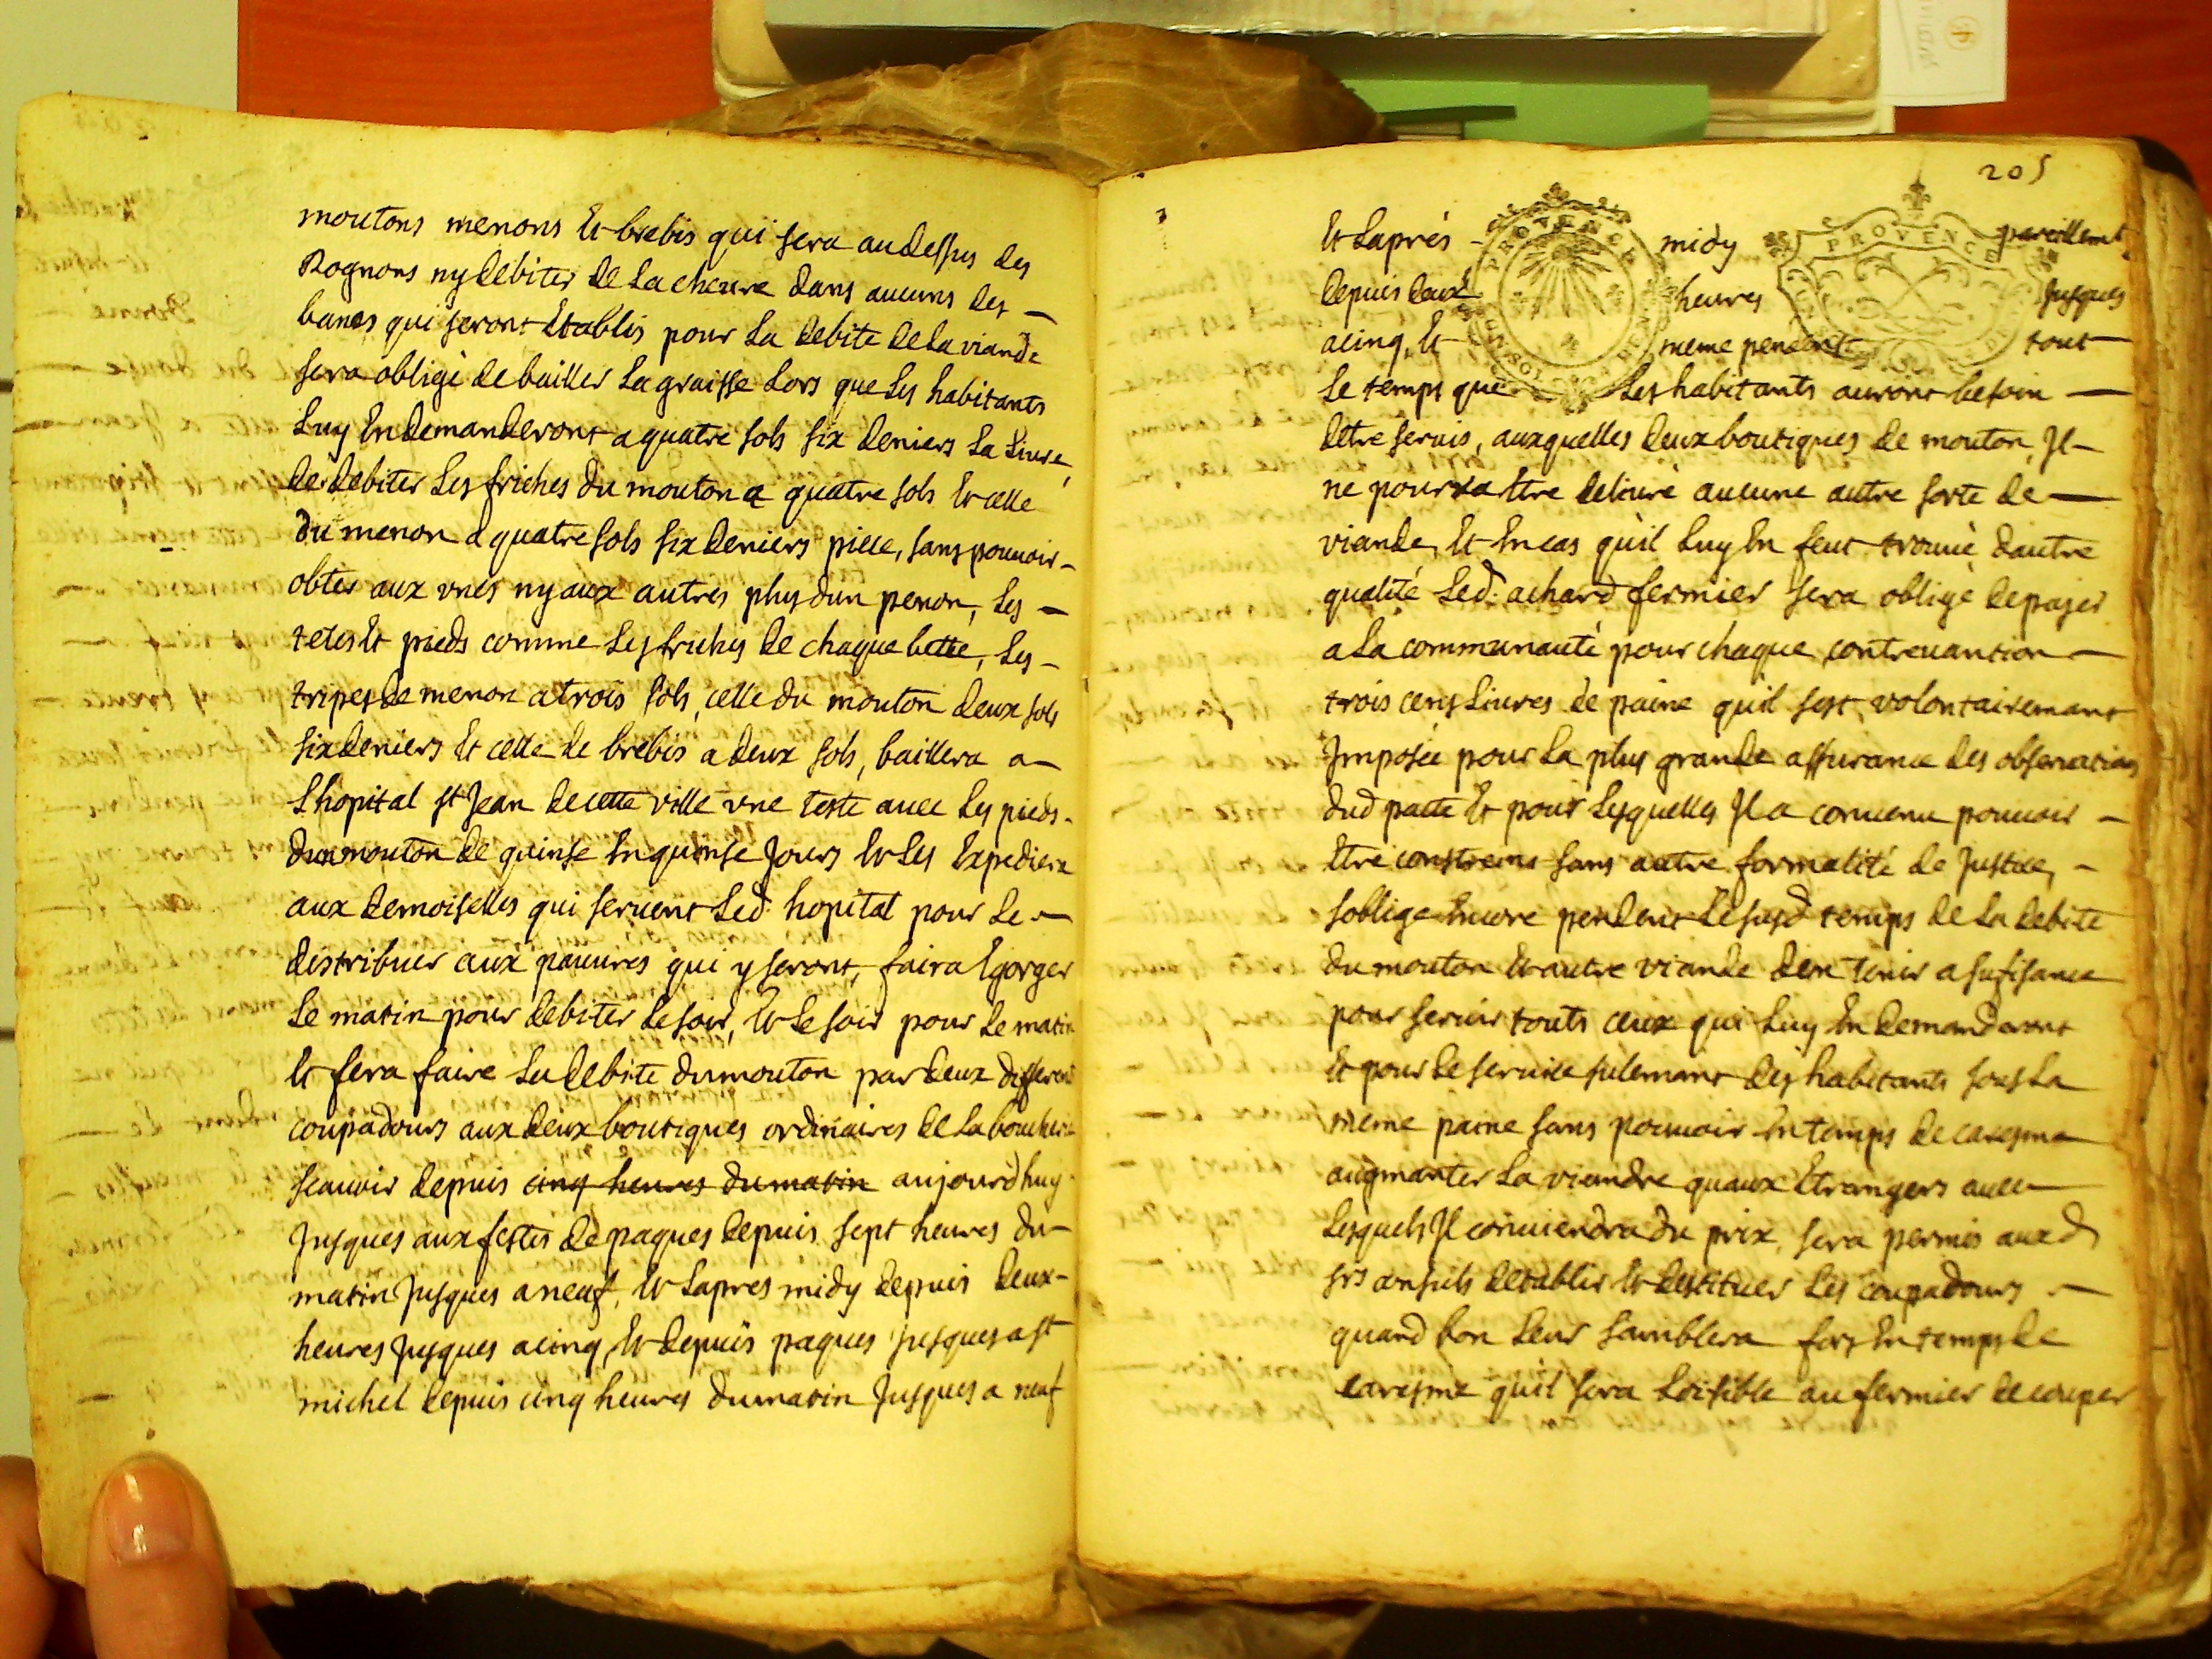 moutons menons Et brebis qui sera audessus des
Rognons ny debiter de La cheure dans aucuns des —
bancs qui seront Etablis pour La debite de La viande
sera obligé de bailler La graisse Lors que Les habitants
Luy En demanderont a quatre sols six deniers La Liure,
de debiter Les friches du mouton a quatre sols Et celle
du menon a quatre sols six deniers piece, sans pouuoir -
obter aux vnes ny aux autres plus dun penon, Les —
tetes Et pieds comme Les friches de chaque bette, Les -
tripes de menon a trois sols, celle du mouton deux sols
six deniers Et celle de brebis a deux sols, baillera a —
L'hopital st Jean de cette ville vne teste auec Les pieds -
dun mouton de quinse En quinse Jours Et Les Expediera
aux demoiselles qui seruent Led. hopital pour Le —
distribuer aux pauures qui y seront, faira Egorger
Le matin pour debiter Le soir, Et Le soir pour Le matin
Et fera faire La debite du mouton par deux differens
coupadours aux deux boutiques ordinaires de La boucherie
scauoir depuis cinq heures du matin aujourdhuy
Jusques aux festes de paques depuis sept heures du -
matin Jusques a neuf, Et Lapres midy depuis deux -
heures Jusques a cinq, Et depuis paques Jusques a st
michel depuis cinq heures du matin Jusques a neuf
205
Et Laprés - midy pareillemt
depuis deux heures Jusques
a cinq, Et meme pendent tout —
Le temps que Les habitants auront besoin —
detre seruis, auxquelles deux boutiques de mouton, Jl -
ne pourra Etre deliuré aucune autre sorte de —
viande, Et En cas qu'il Luy En feut trouué dautre
qualité Led. achard fermier sera obligé de payer
a La communauté pour chaque contreuantion —
trois cens Liures de paine qu'il s'est volontairemant
Jmposée pour La plus grande assurance des obseruations
dud pacte Et pour Lesquelles Jl a conuenu pouuoir —
Etre constreins sans autre formalité de Justice, -
soblige Encore pendent Le susd temps de La debite
du mouton Et autre viande den tenir a sufisance
pour seruir touts ceux qui Luy En demanderont
Et pour Le seruice sulemant des habitants sous La
meme paine sans pouuoir En temps de caresme
augmanter La viandre quaux Etrangers auec —
Lesquels Jl conuiendra du prix, sera permis aux d
srs consuls detablir Et destituer Les coupadours —
quand bon Leur samblera fors En temps de
caresme qu'il sera Loisible au fermier de couper
PROVENCE
PROVENCE